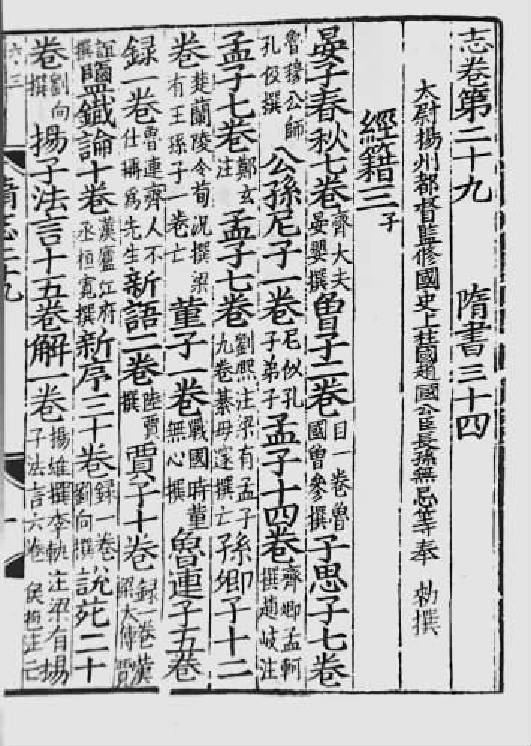 志卷第二十九　隋書三十四
太尉揚州都督監修國史上柱國趙國公臣長孫無忌等奉　勑撰
經籍三子
晏子春秋七卷齊大夫晏嬰撰曾子二卷目一卷魯國曾參撰子思子七卷
魯穆公師孔伋撰公孫尼子一卷尼似孔子弟子孟子十四卷齊卿孟軻撰趙岐注
孟子七卷鄭玄注孟子七卷劉熙注梁有孟子九卷綦毋邃撰亡孫卿子十二
卷楚蘭陵令荀況撰梁有王孫子一卷亡董子一卷戰國時董無心撰魯連子五卷
録一卷魯連齊人不仕稱爲先生新語二卷陸賈撰賈子十卷録一卷漢解大傅賈
誼撰鹽鐵論十卷漢廬江府丞桓寬撰新序三十卷録一卷劉向撰說苑二十
卷劉向撰揚子法言十五卷解一卷揚雄撰李軌注梁有揚子法言六卷侯苞注亡
隋志二十九